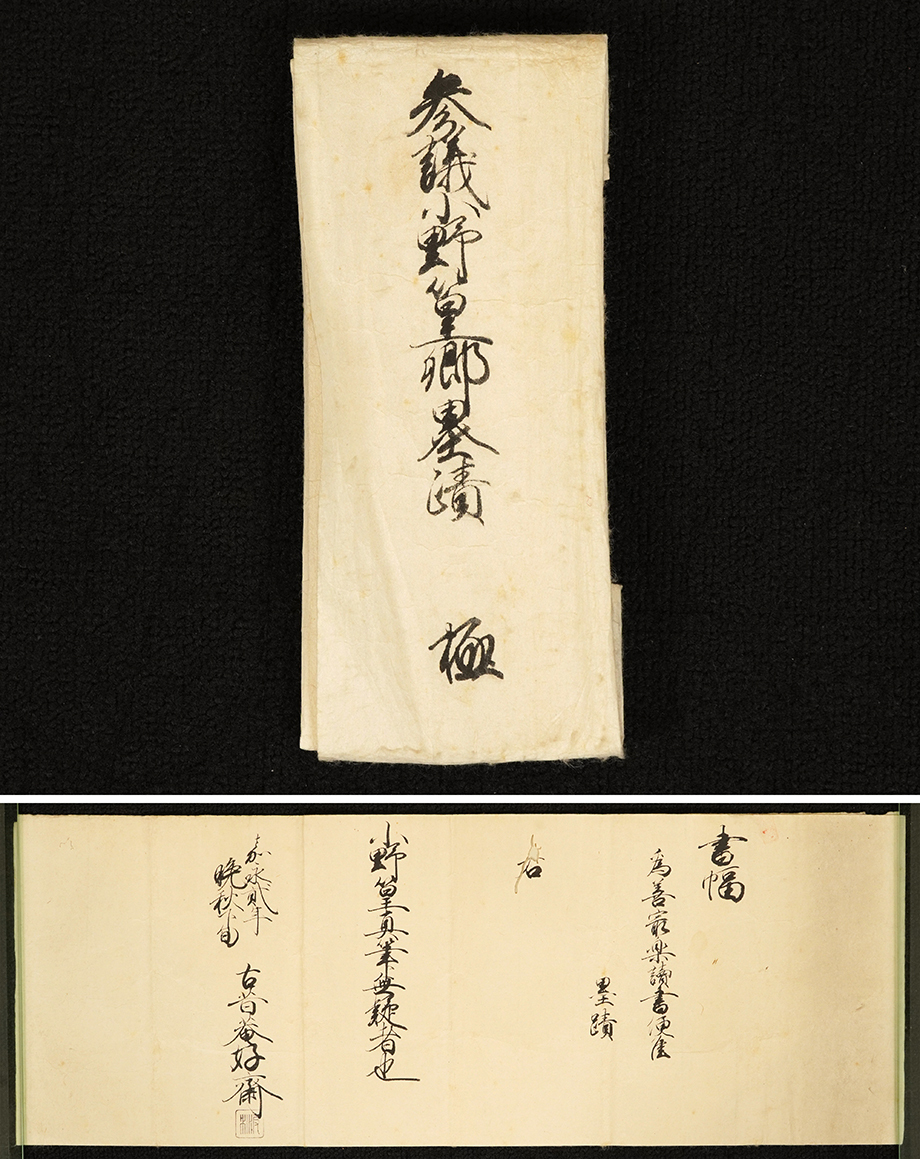 参議小野篁卿墨蹟
極
書幅
為善最楽讀書便佳
墨蹟
右
小野篁真筆無疑者也
嘉永貳年
晩秋下旬
古昔菴好齋